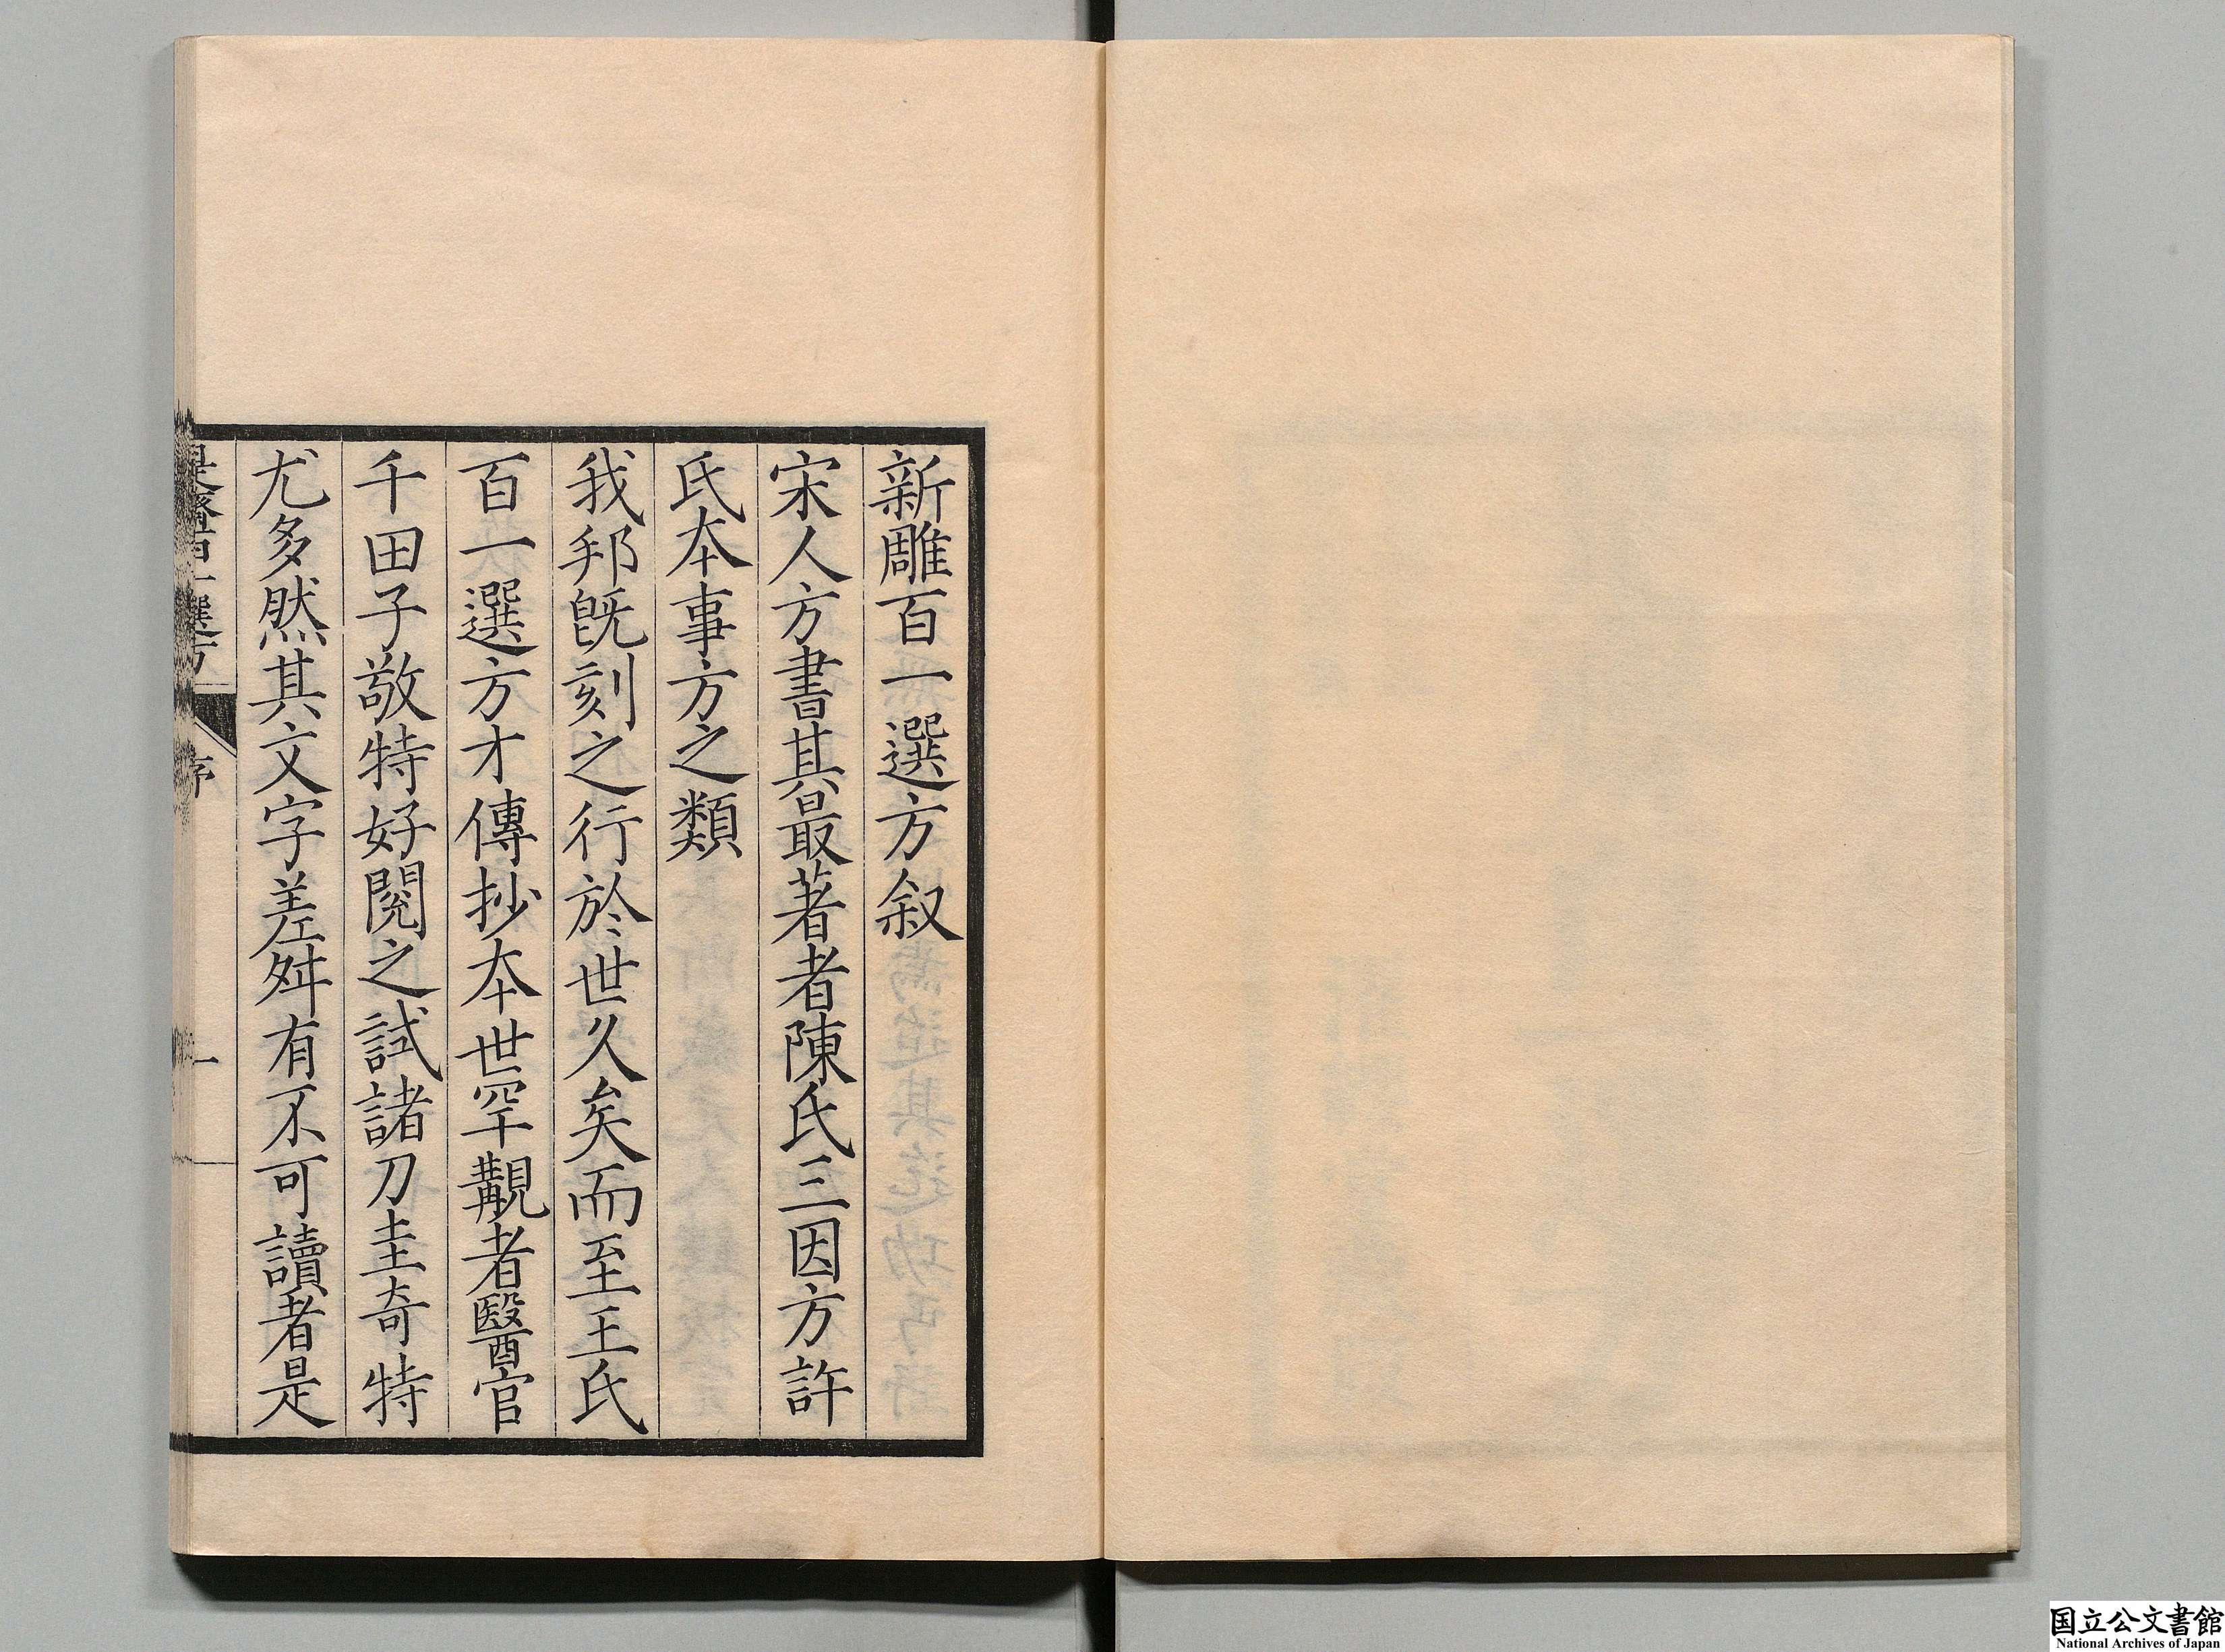 新雕百一選方叙
宋人方書其最著者陳氏三因方許
氏本事方之類
我邦既刻之行於世久矣而至王氏
百一選方才傳抄本世罕覯者醫官
千田子敬特好閱之試諸刀圭奇特
尤多然其文字差舛有不可讀者是
是齋百一選方
序
一
国立公文書館
National Archives of Japan